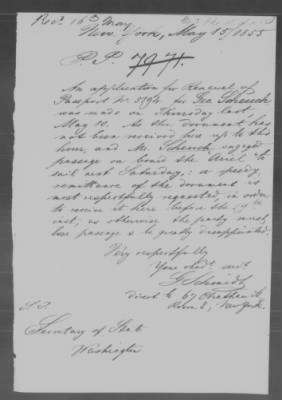 Recd. 16th May
New York, May 15/1855
P.P. 7971
An application for Renewal of
Passport No. 3794 for Geo
was made on Thursday last
May 10. As the document has
not been received here up to this
hour, and Mr. engaged
passage on board the Ariel to
sail next Saturday, a speedy
remittance of the document is
most respectfully requested in order
to receive it here before the
inst, as otherwise the party must
lose passage & be greatly disappointed.
Very respectfully
Your obdt. svt
G Schmidt
direct to 67 Chatham St
Room 8, New York.
Secretary of State
Washington